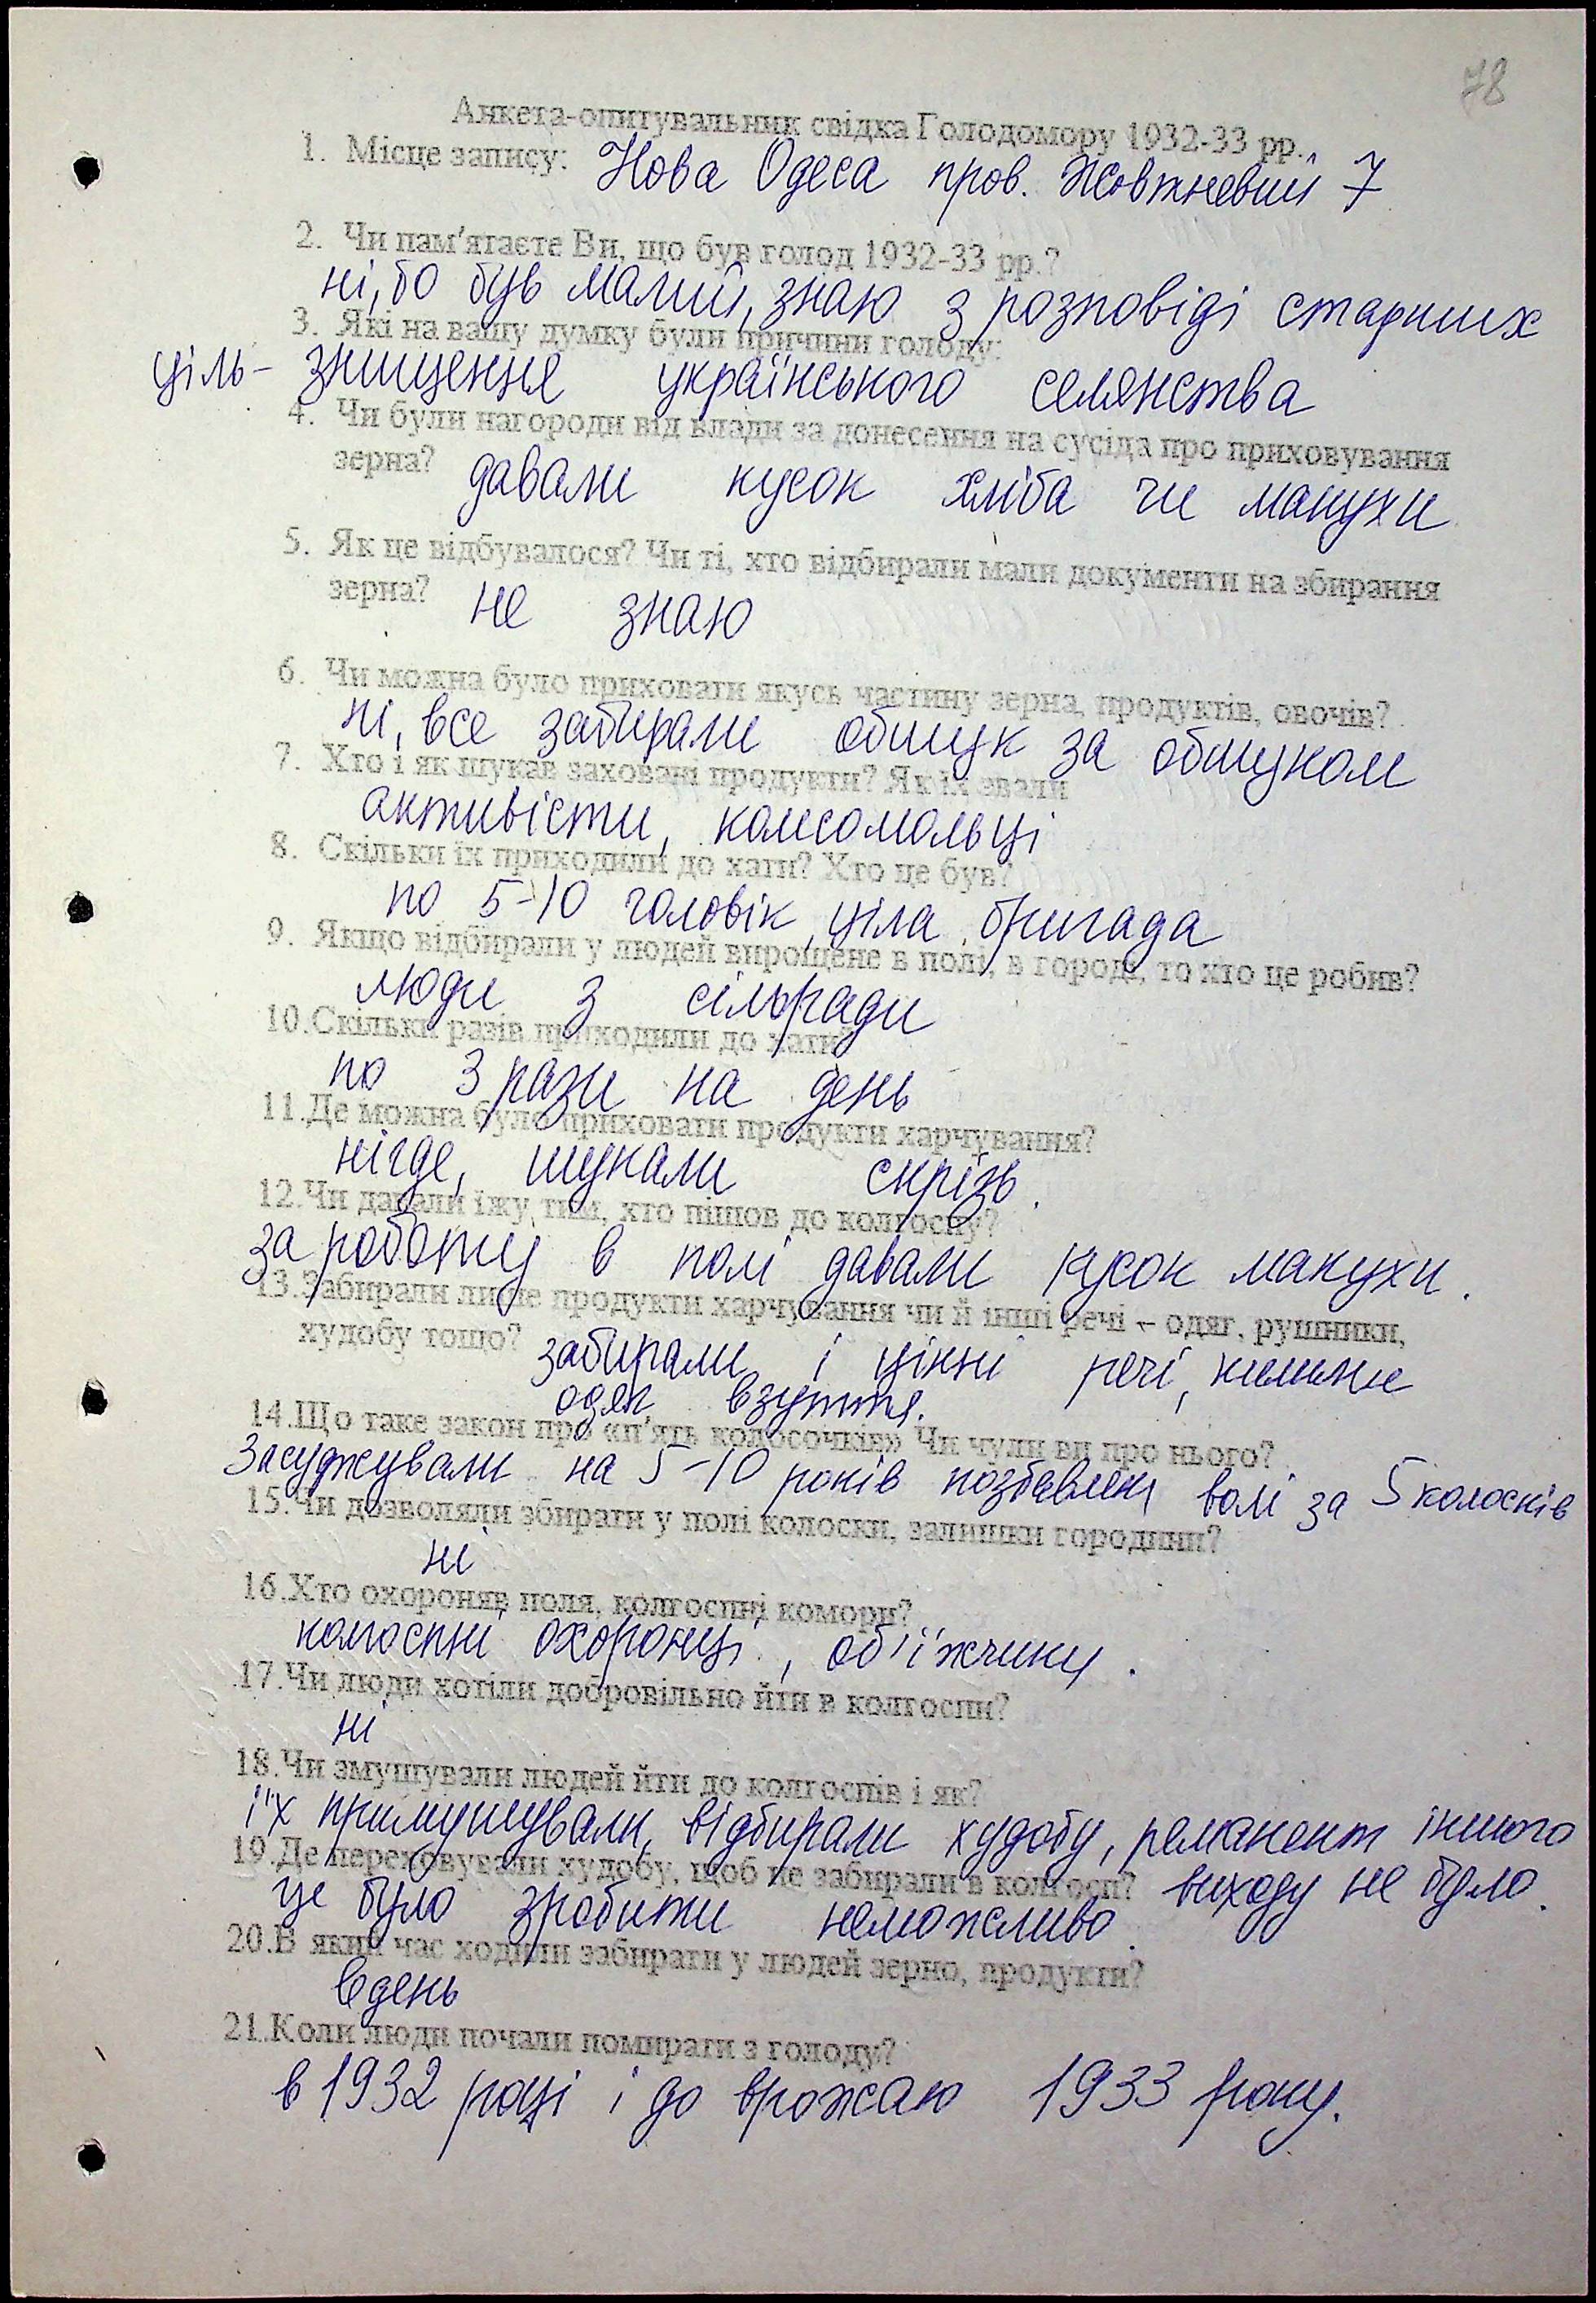 78
Анкета-опитувальник свідка Голодомору 1932-33 рр.
1. Місце запису: Нова Одеса пров. Жовтневий 7
2. Чи пам'ятаєте Ви, що був голод 1932-33 рр.?
ні, бо був малий, знаю з розповіді старших
3. Які на вашу думку були причини голоду:
ціль - знищення українського селянства
4. Чи були нагороди від влади за донесення на сусіда про приховування
зерна? давали кусок хліба чи макухи
5. Як це відбувалося? Чи ті, хто відбирали мали документи на збирання
зерна? не знаю
6. Чи можна було приховати якусь частину зерна, продуктів, овочів?
ні, все забирали обшук за обшуком
7. Хто і як шукав заховані продукти? Як їх звали
активісти, комсомольці
8. Скільки їх приходили до хати? Хто це був?
по 5-10 чоловік, ціла бригада
9. Якщо відбирали у людей вирощене в полі, в городі, то хто це робив?
люди з сільради
10.Скільки разів приходили до хати?
по 3 рази на день
11.Де можна було приховати продукти харчування?
нігде, шукали скрізь.
12.Чи давали їжу тим, хто пішов до колгоспу?
за роботу в полі давали кусок макухи.
13.Забирали лише продукти харчування чи й інші речі – одяг, рушники,
худобу тощо? забирали і цінні речі, килими
одяг взуття.
14.Що таке закон про «п'ять колосочків» Чи чули ви про нього?
Засуджували на 5-10 років позбавлен волі за 5 колосків
15.Чи дозволяли збирати у полі колоски, залишки городини?
ні
16.Хто охороняв поля, колгоспні комори?
колгоспні охоронці, об'їжчики.
17.Чи люди хотіли добровільно йти в колгоспи?
ні
18.Чи змушували людей йти до колгоспів і як?
їх примушували, відбирали худобу, реманент іншого
виходу не було.
19.Де переховували худобу, щоб не забирали в колгосп?
це було зробити неможливо.
20.В який час ходили забирати у людей зерно, продукти?
вдень
21.Коли люди почали помирати з голоду?
в 1932 році і до врожаю 1933 року.